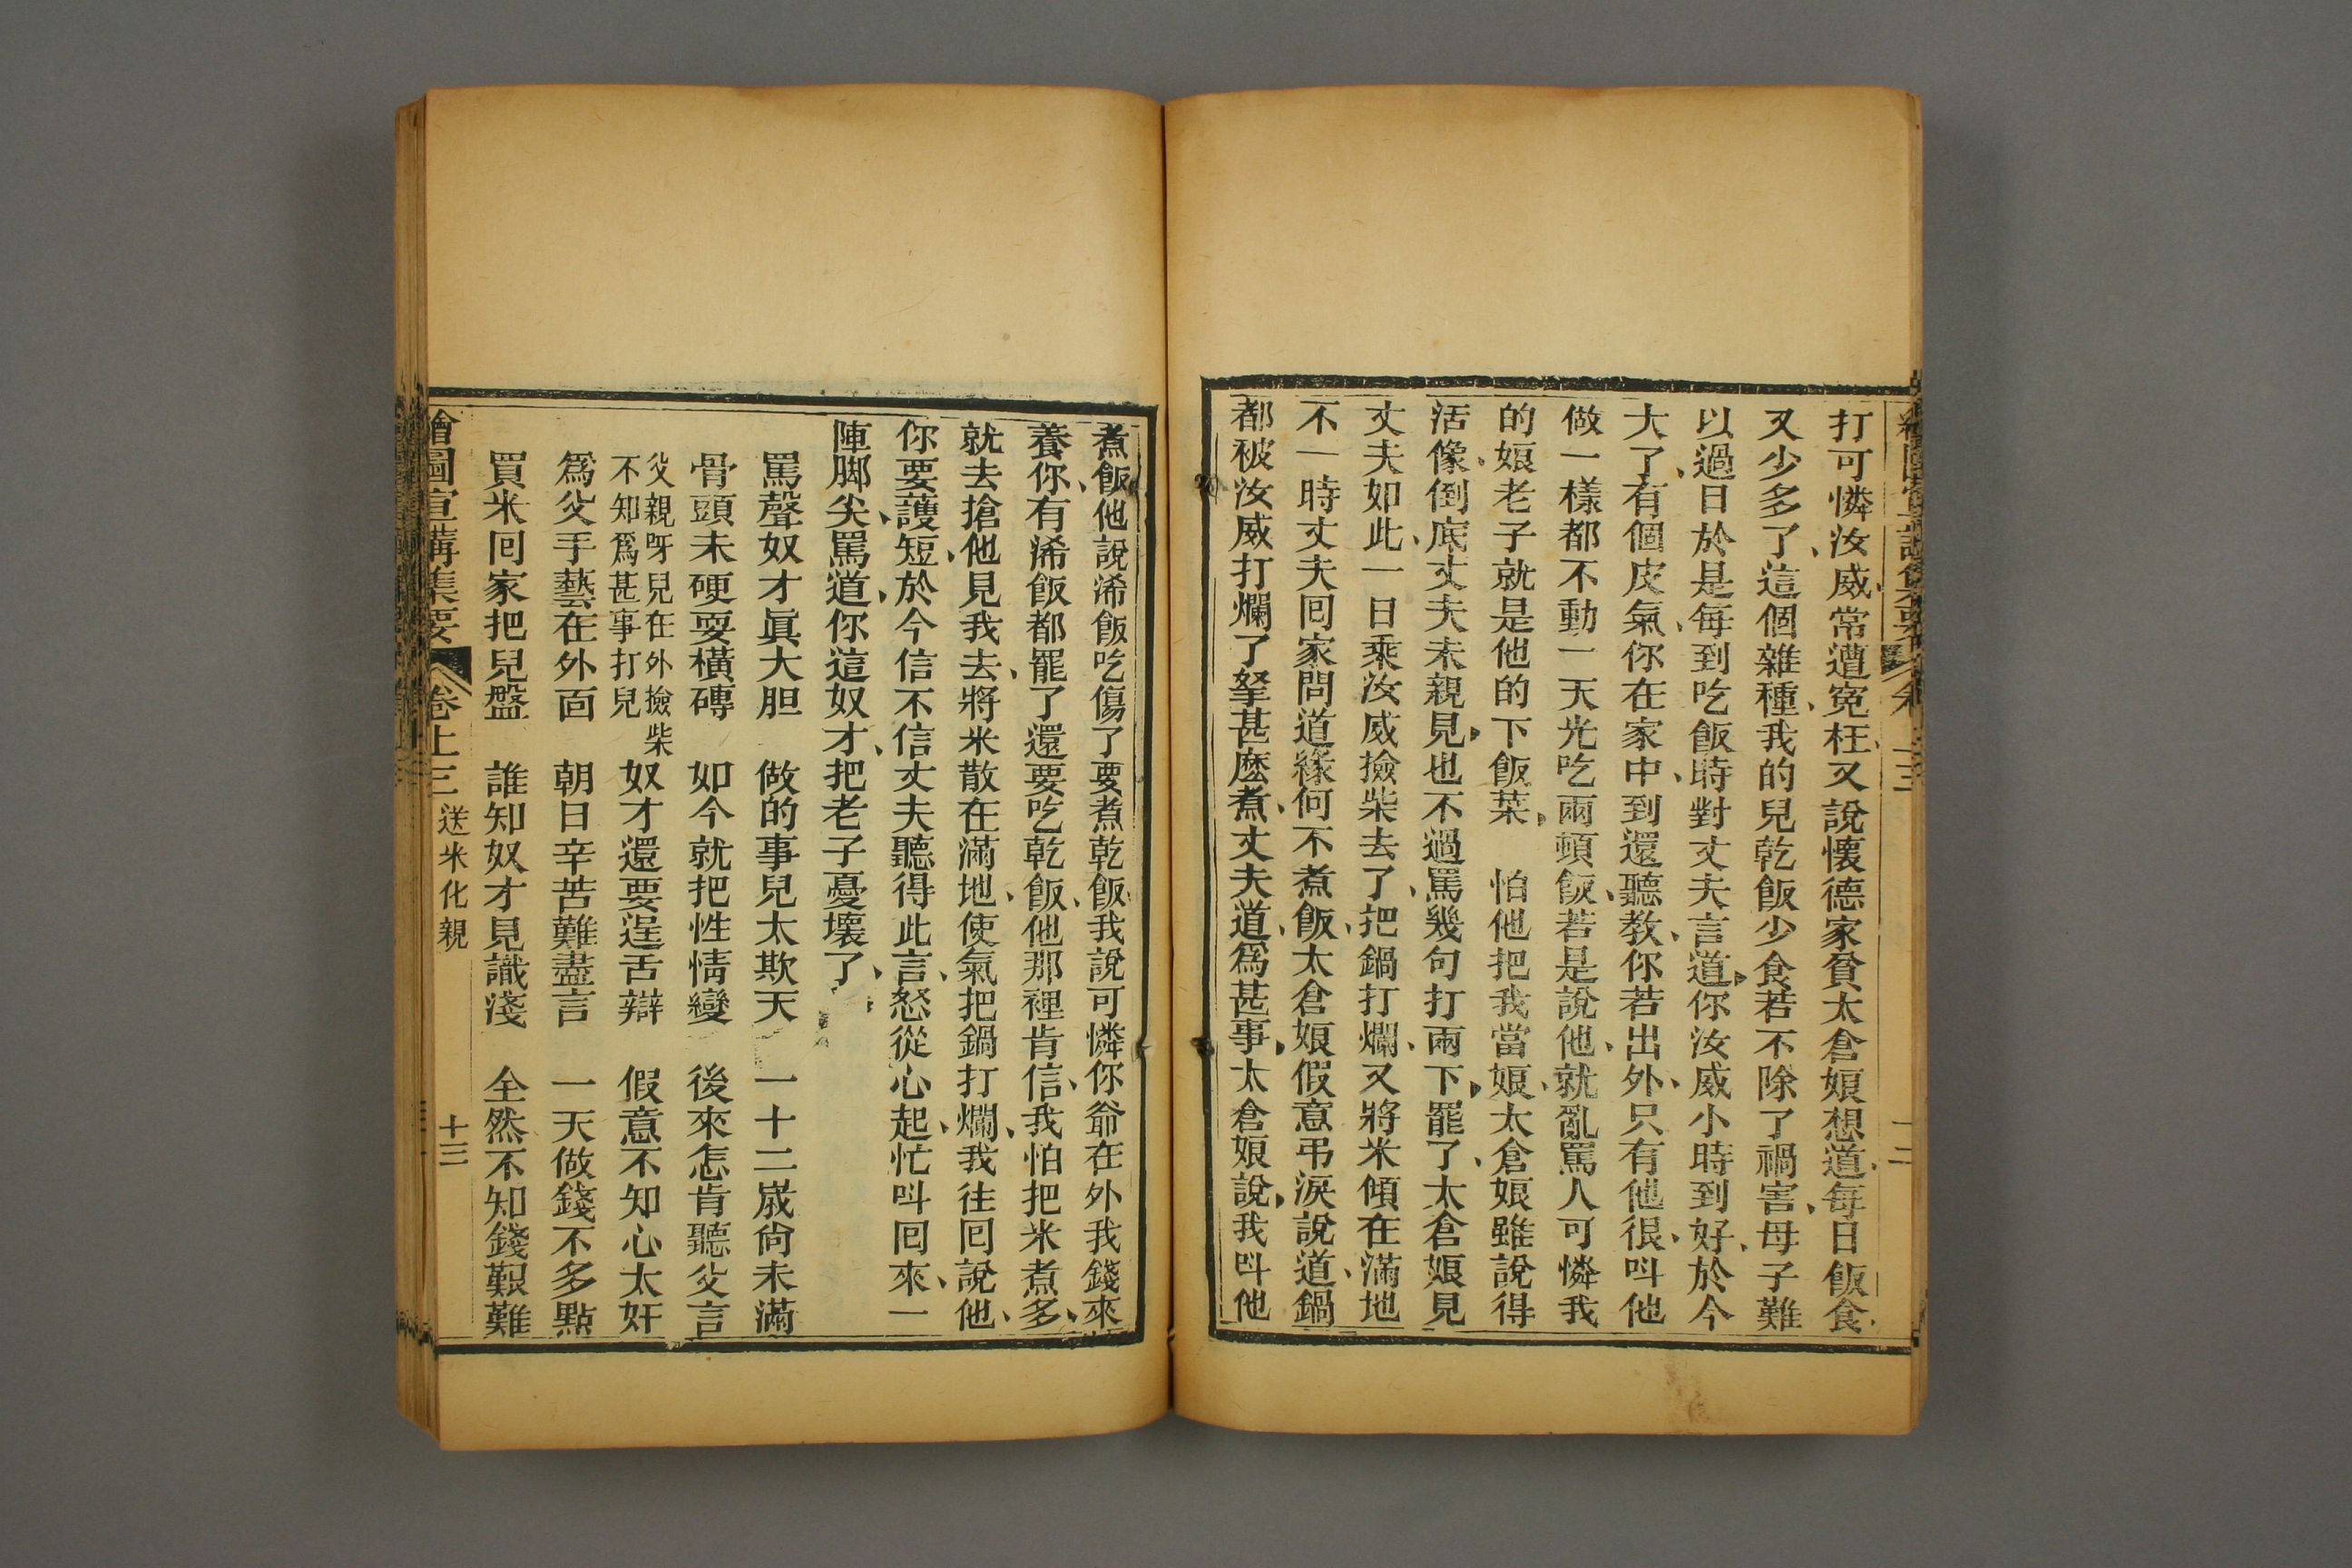 打可憐汝威常遭冤枉又說懷德家貧太倉娘想道每日飯食
又少多了這個雜種我的兒乾飯少食若不除了禍害母子難
以過日於是每到吃飯時對丈夫言道你汝威小時到好於今
大了有個皮氣你在家中到還聽教你若出外只有他很呌他
做一樣都不動一天光吃兩頓飯若是說他就亂罵人可憐我
的娘老子就是他的下飯菜 怕他把我當娘太倉娘雖說得
活像倒底丈夫未親見也不過罵幾句打兩下罷了太倉娘見
丈夫如此一日乘汝威撿柴去了把鍋打爛又將米傾在滿地
不一時丈夫囘家問道緣何不煮飯太倉娘假意弔淚說道鍋
都被汝威打爛了拏甚麽煮丈夫道爲甚事太倉娘說我呌他
煮飯他說浠飯吃傷了要煮乾飯我說可憐你爺在外我錢來
養你有浠飯都罷了還要吃乾飯他那裡肯信我怕把米煮多
就去搶他見我去將米散在滿地使氣把鍋打爛我往囘說他
你要護短於今信不信丈夫聽得此言怒從心起忙呌囘來一
陣脚尖罵道你這奴才把老子憂壞了
罵聲奴才眞大胆 做的事兒太欺天 一十二歲尙未滿
骨頭未硬耍橫磚 如今就把性情變 後來怎肯聽父言
父親呀兒在外撿柴
不知爲甚事打兒
奴才還要逞舌辯 假意不知心太奸
爲父手藝在外面 朝日辛苦難盡言 一天做錢不多點
買米囘家把兒盤 誰知奴才見識淺 全然不知錢艱難
繪圖宣講集要 卷上三 送米化親 十三